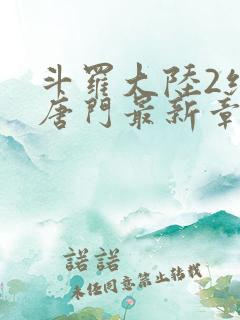 斗羅大陸2絕
唐門最新章
諾諾
未经同意禁止转载